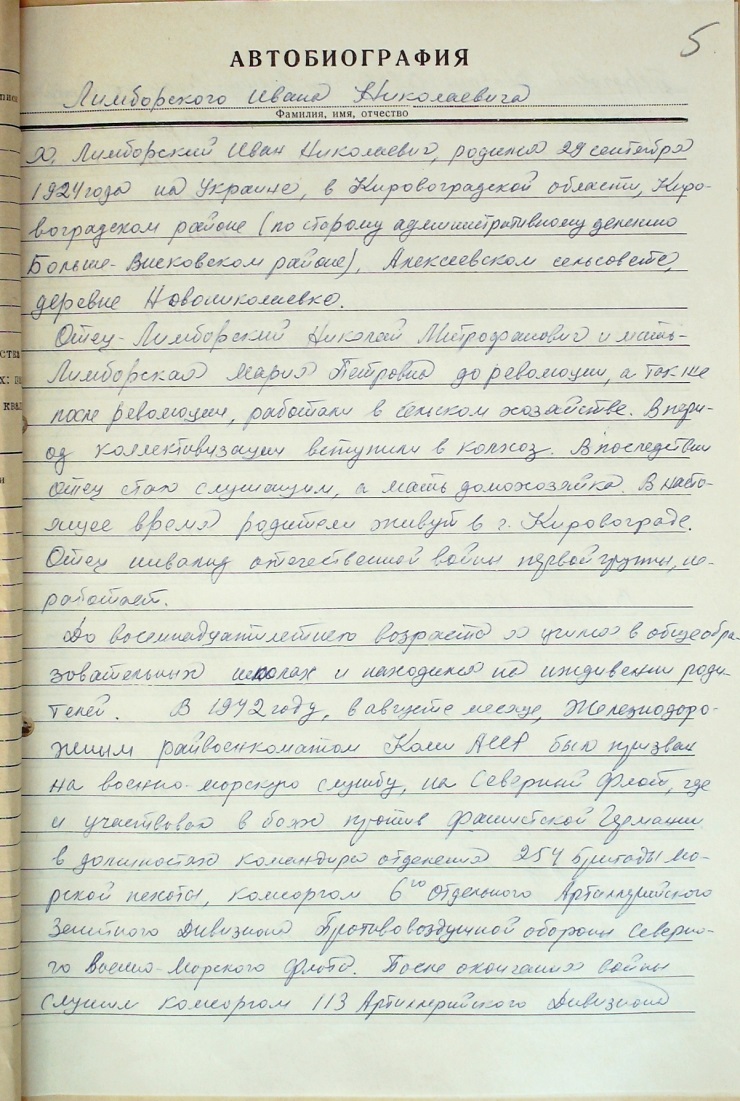 5
АВТОБИОГРАФИЯ
Лимборского Ивана Николаевича
Фамилия, имя, отчество
Я, Лимборский Иван Николаевич, родился 29 сентября
1924 года на Украине, в Кировоградской области, Киро-
воградском районе (по старому административному делению
Больше-Висковском районе), Алексеевском сельсовете,
деревне Новониколаевка.
Отец - Лимборский Николай Митрофанович и мать -
Лимборская Мария Петровна до революции, а так же
после революции, работали в сельском хозяйстве. В пери-
од коллективизации вступили в колхоз. В последствии
отец стал служащим, а мать домохозяйка. В насто-
ящее время родители живут в г. Кировограде.
Отец инвалид отечественной войны первой группы, не-
работает.
До восемнадцатилетнего возраста я учился в общеобра-
зовательных школах и находился на иждивении роди-
телей. В 1942 году, в августе месяце, Железнодоро-
жным райвоенкоматом Коми АССР был призван
на военно-морскую службу, на Северный Флот, где
и участвовал в боях против фашистской Германии
в должностях командира отделения 254 бригады Мо-
рской пехоты, комсоргом 6го Отдельного Артиллерийского
Зенитного Дивизиона Противовоздушной обороны Северно-
го Военно-Морского Флота. После окончания войны
служил комсоргом 113 Артиллерийского Дивизиона
ства
х: на
квал
и